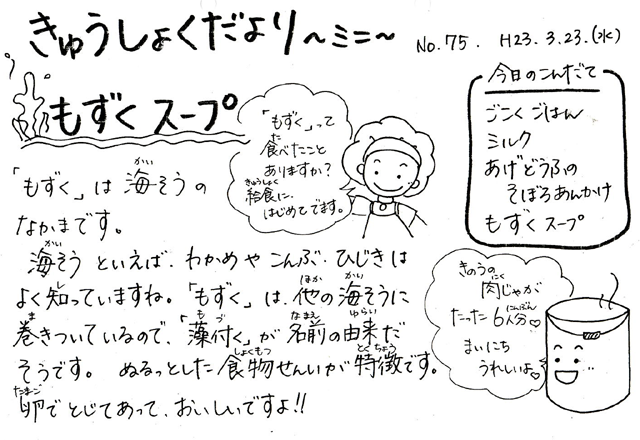 きゅうしょくだより～ミニ～ No.75. H23.3.23.(水)
もずくスープ
「もずく」って
食べたこと
ありますか？
給食に、
はじめてでます。
今日のこんだて
ごこくごはん
ミルク
あげどうふの
そぼろあんかけ
もずくスープ
「もずく」は海そうの
なかまです。
海そうといえば、わかめやこんぶ、ひじきは
よく知っていますね。「もずく」は、他の海そうに
巻きついているので、「藻付く」が名前の由来だ
そうです。ぬるっとした食物せんいが特徴です。
卵でとじてあって、おいしいですよ!!
きのうの
肉じゃが
たった6人分♡
まいにち
うれしいよ♡